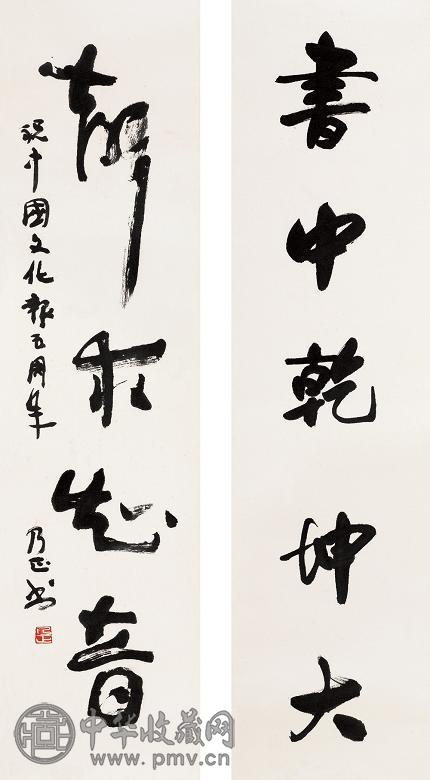 書中乾坤大
知音
祝中國文化報五周年
乃正書
中华收藏网
www.pmv.cn